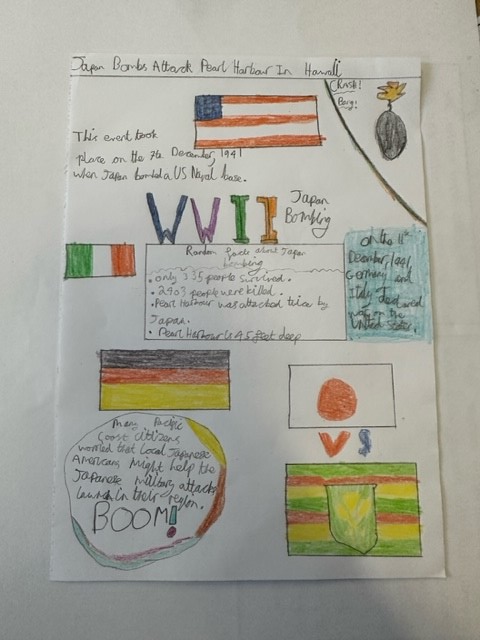 Japan Bombs Attack Pearl Harbour In Hawaii
CRASH!
Bang!
This event took
place on the 7th December, 1941
when Japan bombed a US Naval base.
WWII
Japan
Bombing
Random facts about Japan
bombing
• only 335 people survived.
• 2403 people were killed.
• Pearl Harbour was attacked twice by
Japan.
• Pearl Harbour is 45 feet deep
on the 11th
December, 1941
Germany and
Italy Declared
war on the
United States.
Many Pacific
Coast citizens
worried that local Japanese
Americans might help the
Japanese military attacks
launch in their region.
BOOM!
VS